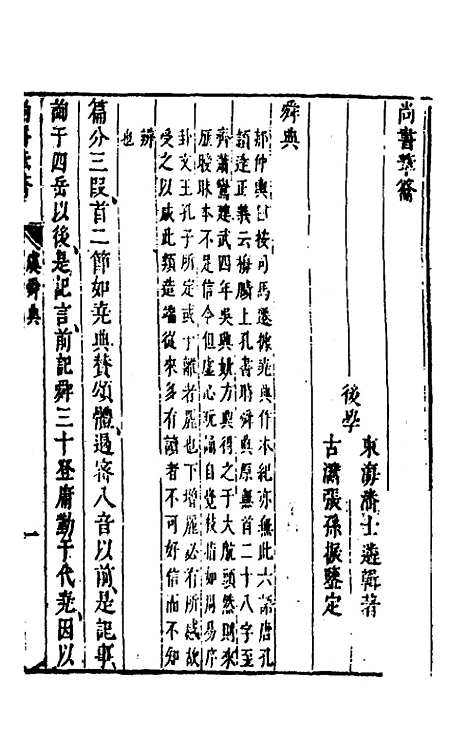 尚書葦籥
後學
東海潘士遴輯著
古潭張孫振鑒定
舜典
郝仲輿曰按司馬遷據堯典作本紀亦無此六語唐孔
穎達正義云梅賾上孔書時舜典原無首二十八字至
齊蕭鸞建武四年吳興姚方興得之于大航頭然則來
歷曖昧本不足信今但虛心玩誦自覺枝指如周易序
卦文王孔子所定或于離麗也下增麗必有所感故
受之以咸此類造端從來多有讀者不可好信而不知
辨
也
篇分三段首二節如堯典贊頌體遏密八音以前是記事
詢于四岳以後是記言前記舜三十登庸勤于代堯因以
虞舜典
一